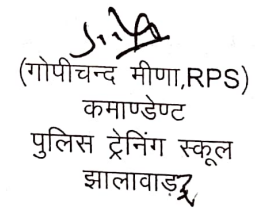 (गोपीचन्द मीणा,RPS)
कमाण्डेण्ट
पुलिस ट्रेनिंग स्कूल
झालावाड़